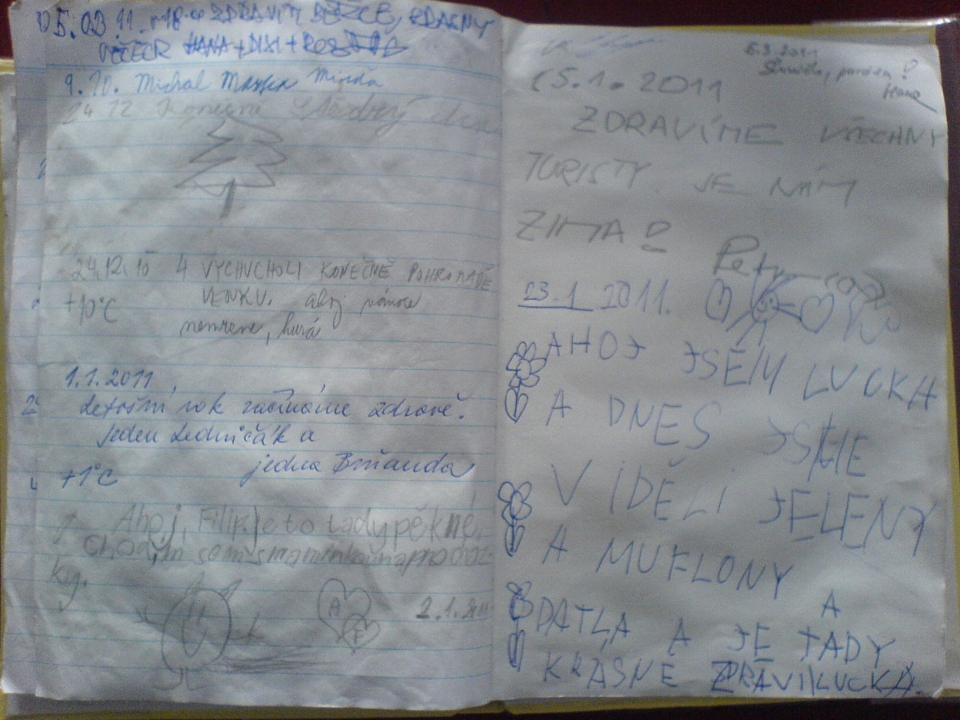 05.03.11 v 18.00 ZDRAVÍM BĚŽCE, KRÁSNÝ
VEČER HANA + DIXI +
9. 10. Michal
24.12 Konečně Štědrý den
24.12.10 4 VYCHUCHOLI KONEČNĚ POHROMADĚ
+10°C VENKU. ahoj vánoce
nemrzne, hurá
1.1.2011
Letošní rok začínáme zdravě.
Jeden Ledničák a
+1°C jedna Brňanda
Ahoj, Filip, je to tady pěkné,
chodím sem s maminkou na procház-
ky.
A
F
2.1.2011
5.3.2011
pardon!
Hana
15.1.2011
ZDRAVÍME VŠECHNY
TURISTY JE NÁM
ZIMA!
Petr
23.1 2011.
AHOJ JSEM LUCKA
A DNES JSME
VIDĚLI JELENY
A MUFLONY
A
DATLA A JE TADY
KRÁSNĚ ZDRAVI LUCKA.